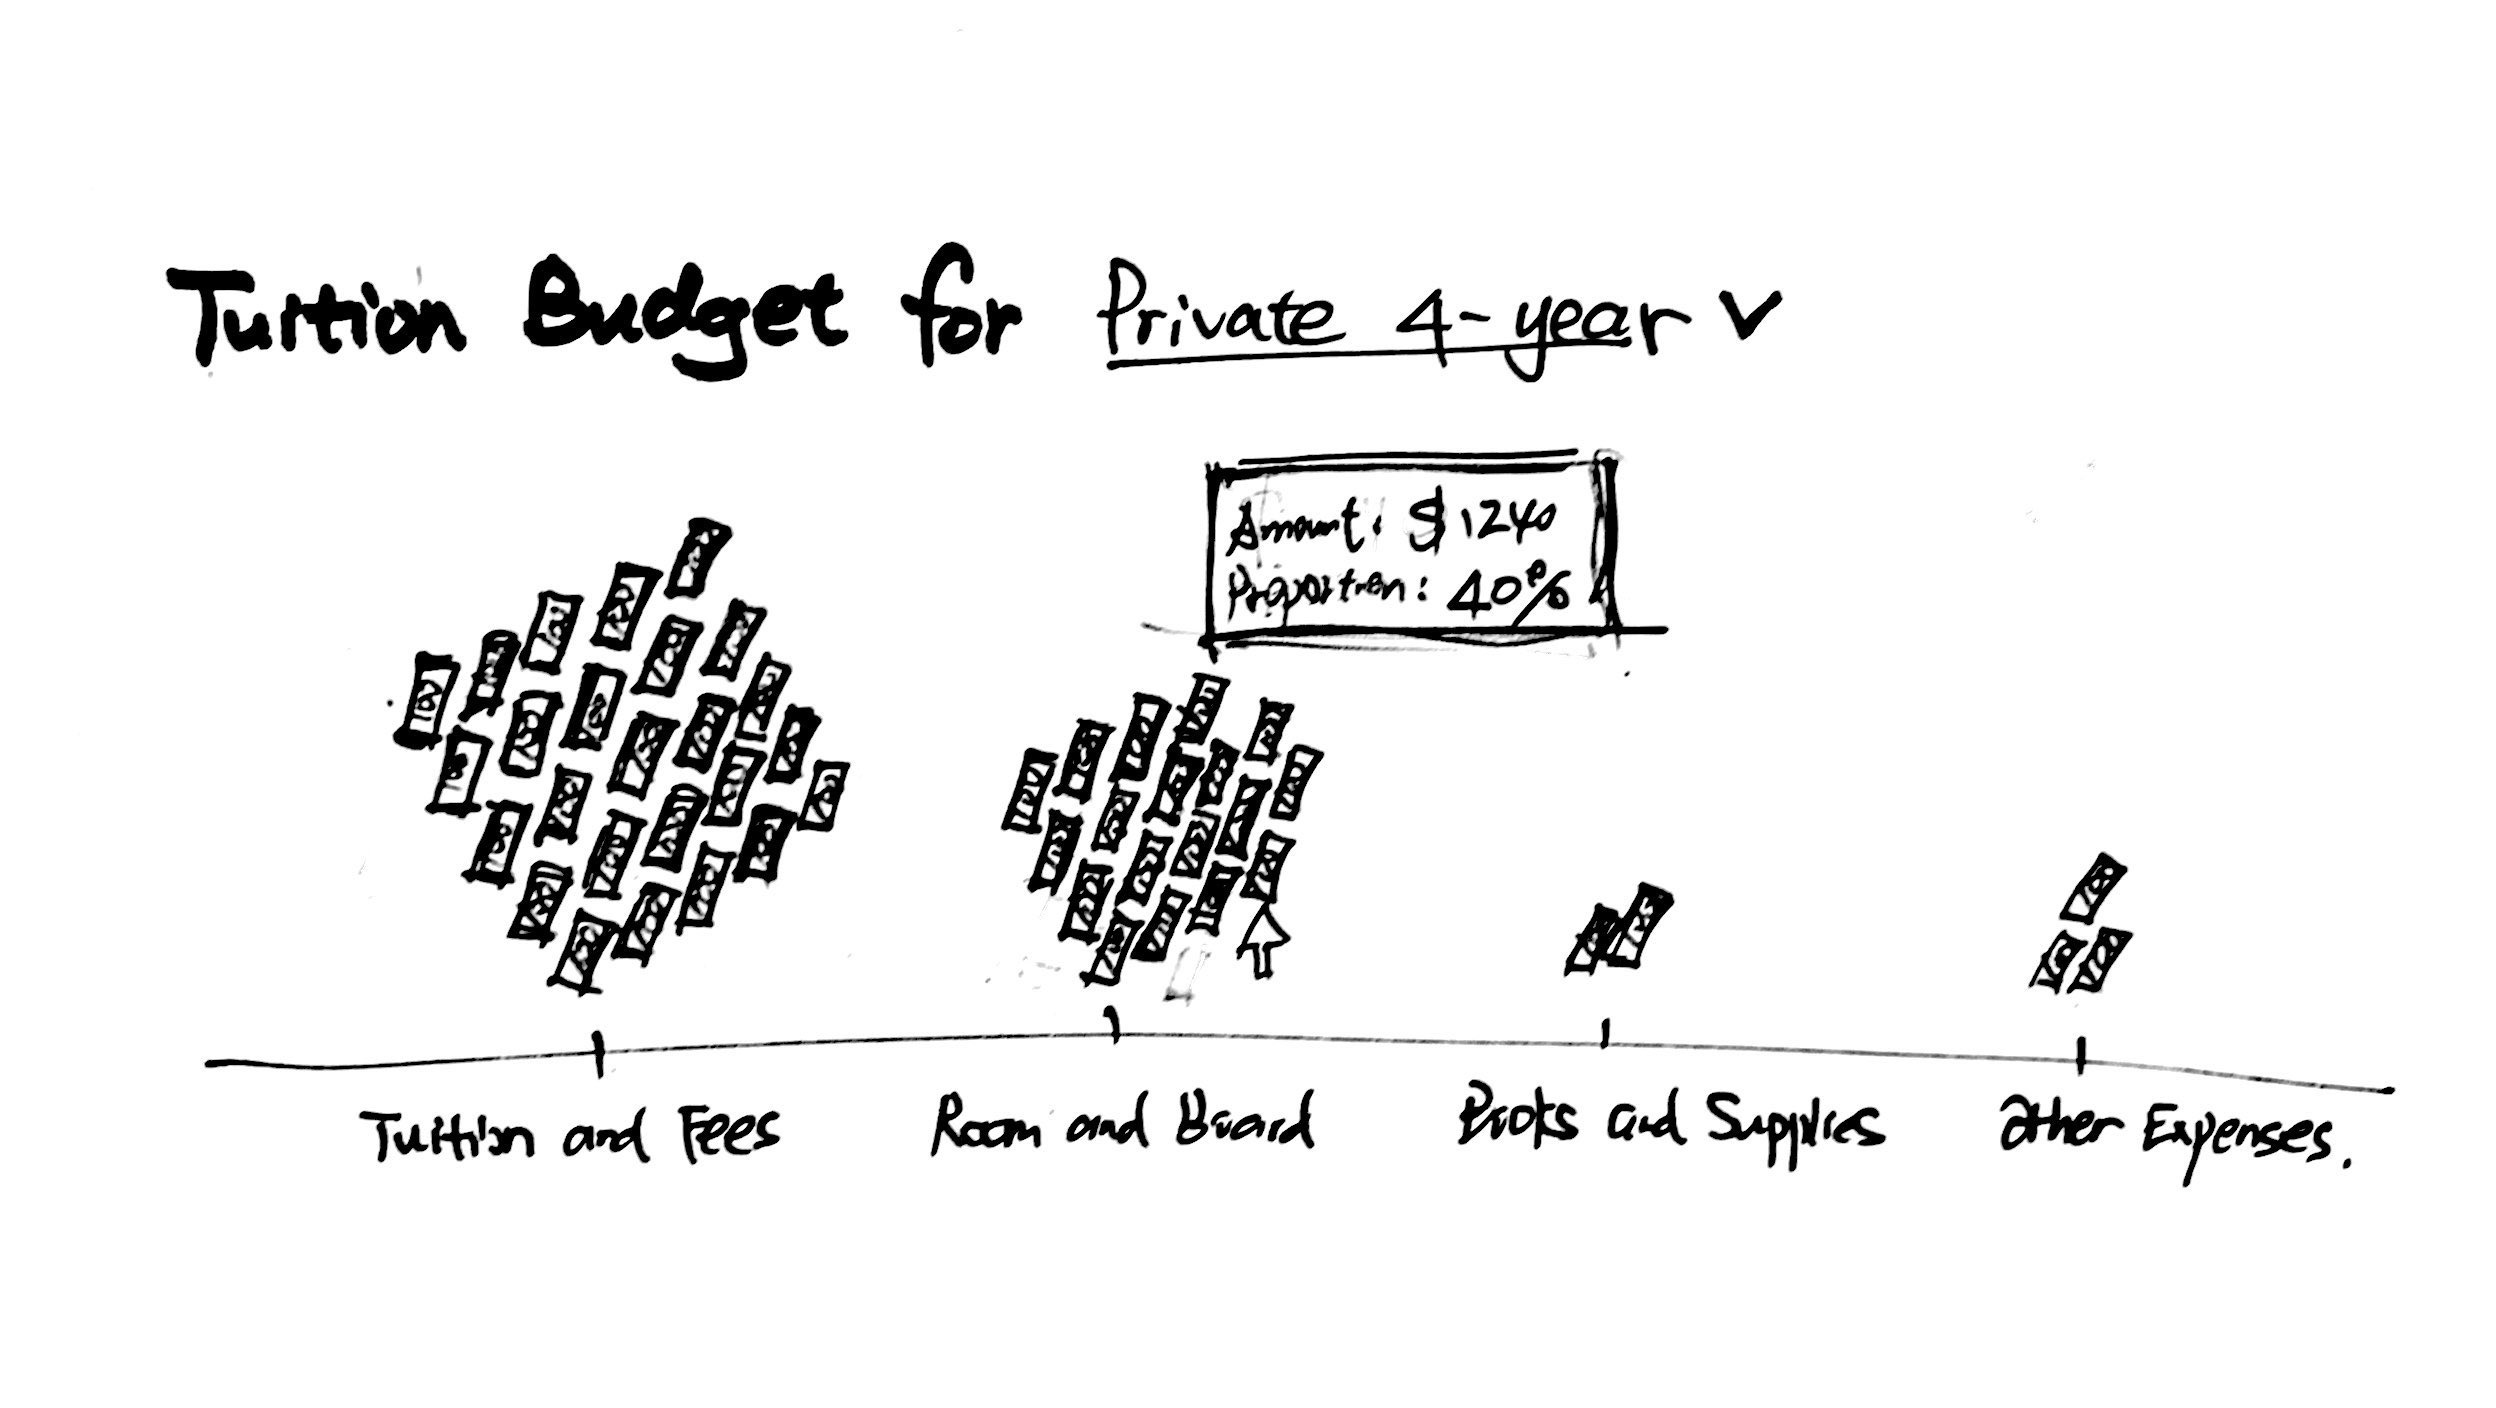 Tuition Budget for Private 4-year v
Amount: $ 1240
Proportion: 40%
Tuition and Fees
Room and Board
Books and Supplies
Other Expenses.